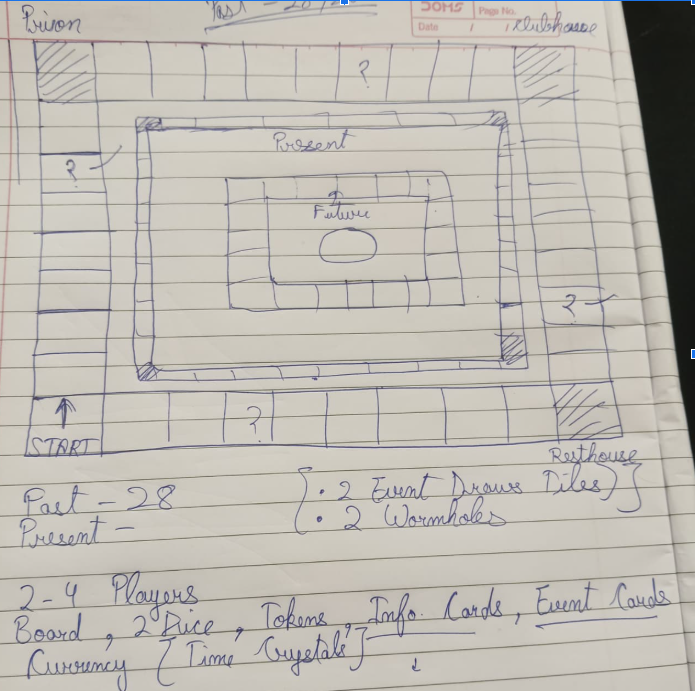 Past - 28
DOMS Page No.
Date / /
Prison
Clubhouse
?
Present
?
Future
?
?
START
Resthouse
Past - 28
Present -
[ • 2 Event Draws Tiles)
• 2 Wormholes ]
2-4 Players
Board, 2 Dice, Tokens, Info. Cards, Event Cards
Currency [Time Crystals] ↓